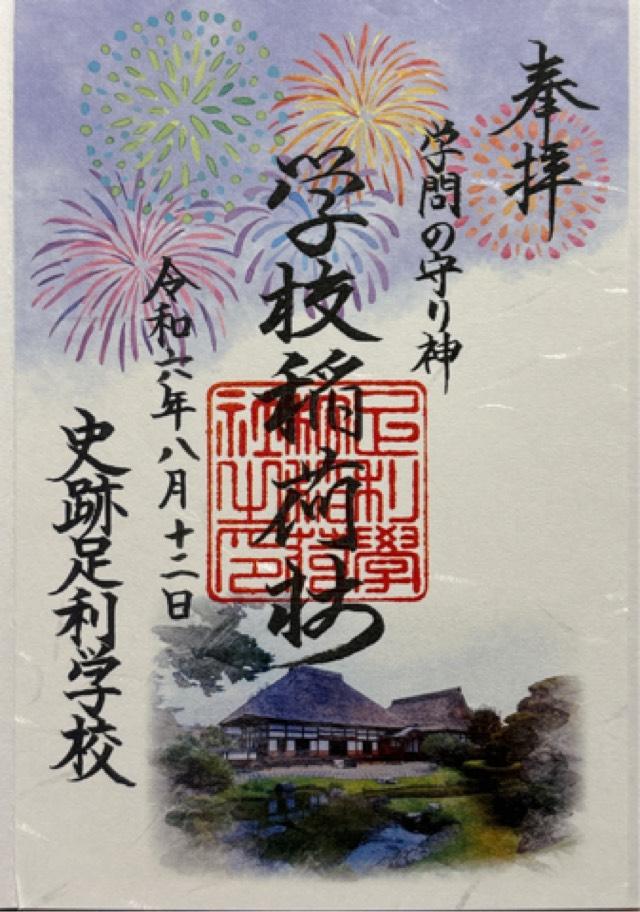 奉拝
学問の守り神
学校稲荷社
令和六年八月十二日
史跡足利学校
足利學
校稲荷
社之印